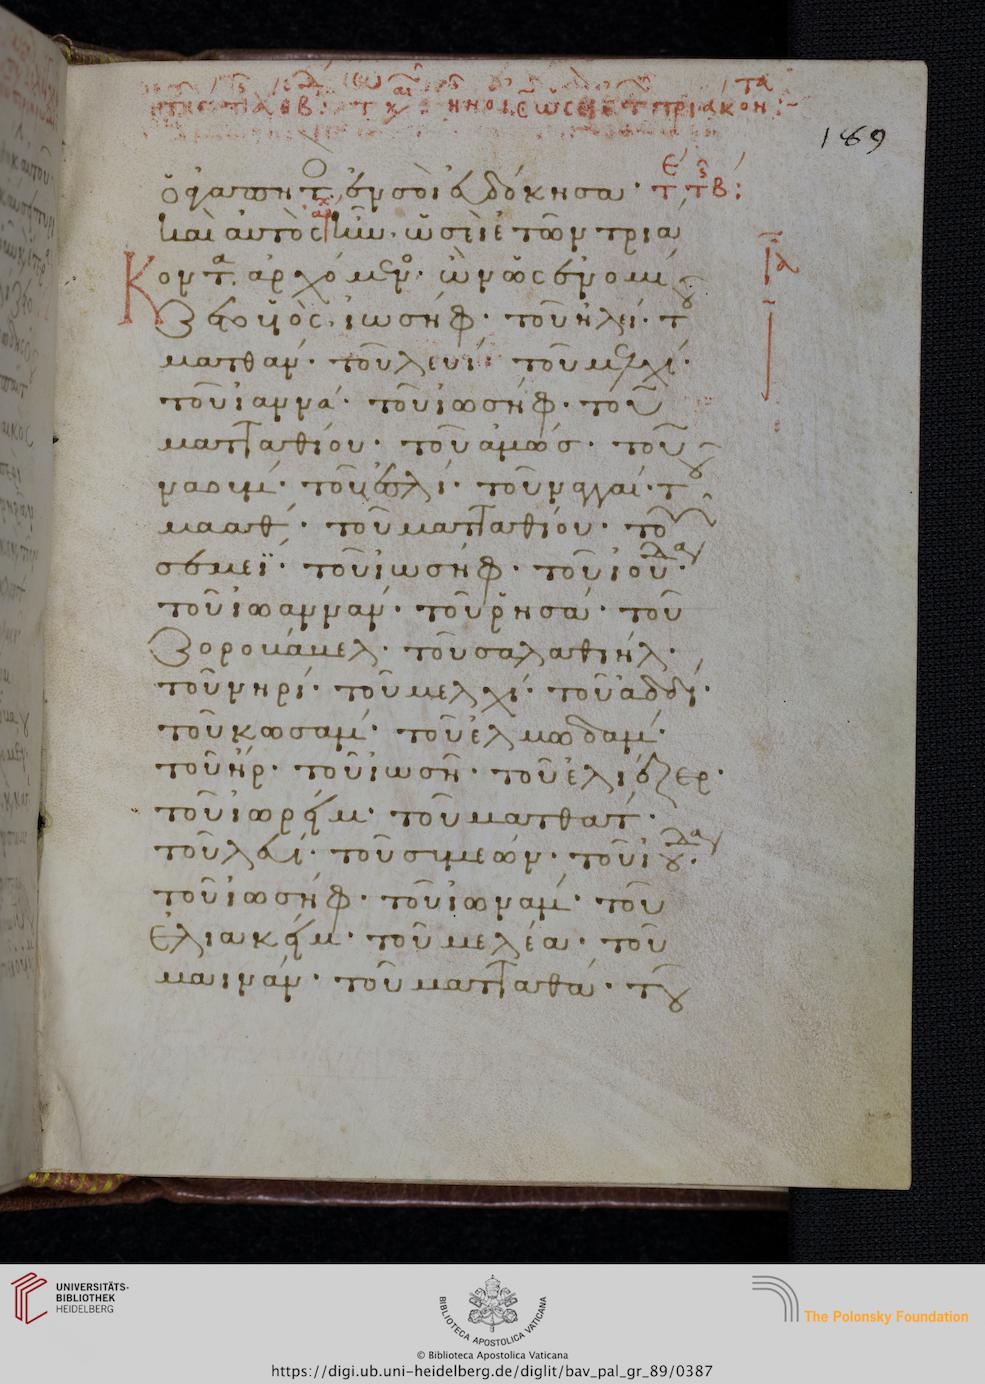 189
ὁ ἀγαπητ ἐν σοὶ εὐδόκησα·
καὶ αὐτὸς ἦν ὡσεὶ ἐτῶν τριά
Κοντα ἀρχόμενος· ὢν ὡς ἐνομί
ζετο υἱὸς, ἰωσὴφ· τοῦ ἠλεί· τοῦ
ματθάν· τοῦ λευί· τοῦ μελχί·
τοῦ ἰαννά· τοῦ ἰωσήφ· τοῦ
ματταθίου· τοῦ ἀμώσ· τοῦ
ναούμ· τοῦ ἐσλί· τοῦ ναγγαί· τοῦ
μαάθ· τοῦ ματταθίου· τοῦ
σεμεΐ· τοῦ ἰωσήφ· τοῦ ἰούδα·
τοῦ ἰωαννάν· τοῦ ῥησά· τοῦ
ζοροβάβελ· τοῦ σαλαθιήλ·
τοῦ νηρί· τοῦ μελχί· τοῦ ἀδδί·
τοῦ κωσάμ· τοῦ ἐλμωδάμ·
τοῦ ἤρ· τοῦ ἰωσῆ· τοῦ ἐλιέζερ·
τοῦ ἰωρείμ· τοῦ ματθάτ·
τοῦ λευί· τοῦ συμεών· τοῦ ἰούδα·
τοῦ ἰωσήφ· τοῦ ἰωνάμ· τοῦ
ἐλιακείμ· τοῦ μελέα· τοῦ
μαινάν· τοῦ ματταθά· τοῦ
UNIVERSITÄTS-
BIBLIOTHEK
HEIDELBERG
BIBLIOTECA APOSTOLICA VATICANA
The Polonsky Foundation
© Biblioteca Apostolica Vaticana
https://digi.ub.uni-heidelberg.de/diglit/bav_pal_gr_89/0387